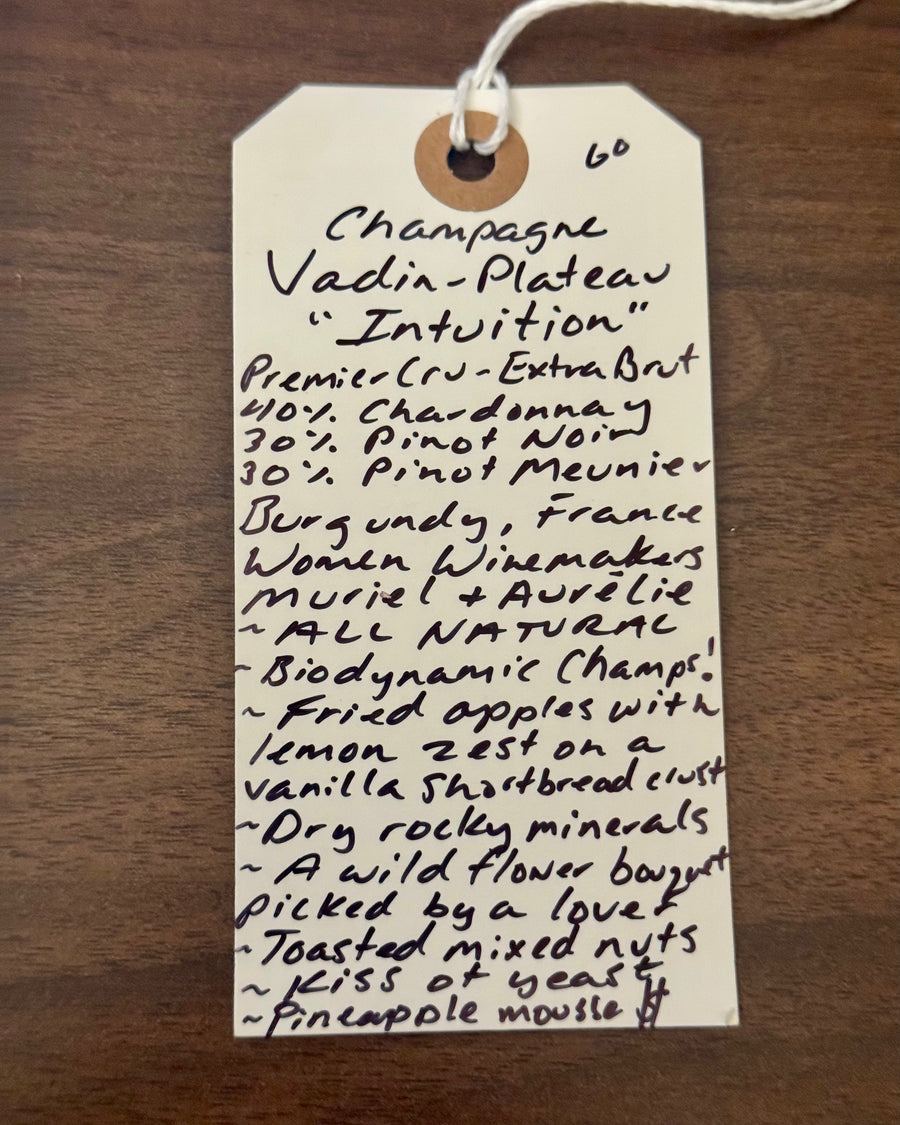 60
Champagne
Vadin-Plateau
"Intuition"
Premier Cru - Extra Brut
40% Chardonnay
30% Pinot Noir
30% Pinot Meunier
Burgundy, France
Women Winemakers
Muriel + Aurélie
~ ALL NATURAL
~ Biodynamic Champs!
~ Fried apples with
lemon zest on a
vanilla shortbread crust
~ Dry rocky minerals
~ A wild flower bouquet
picked by a lover
~ Toasted mixed nuts
~ Kiss of yeast
~ Pineapple mousse